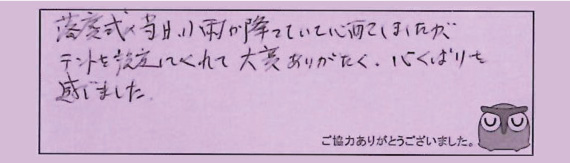 落慶式の当日、小雨が降っていて心配しましたが
テントを設定してくれて大変ありがたく、心くばりを
感じました。
ご協力ありがとうございました。